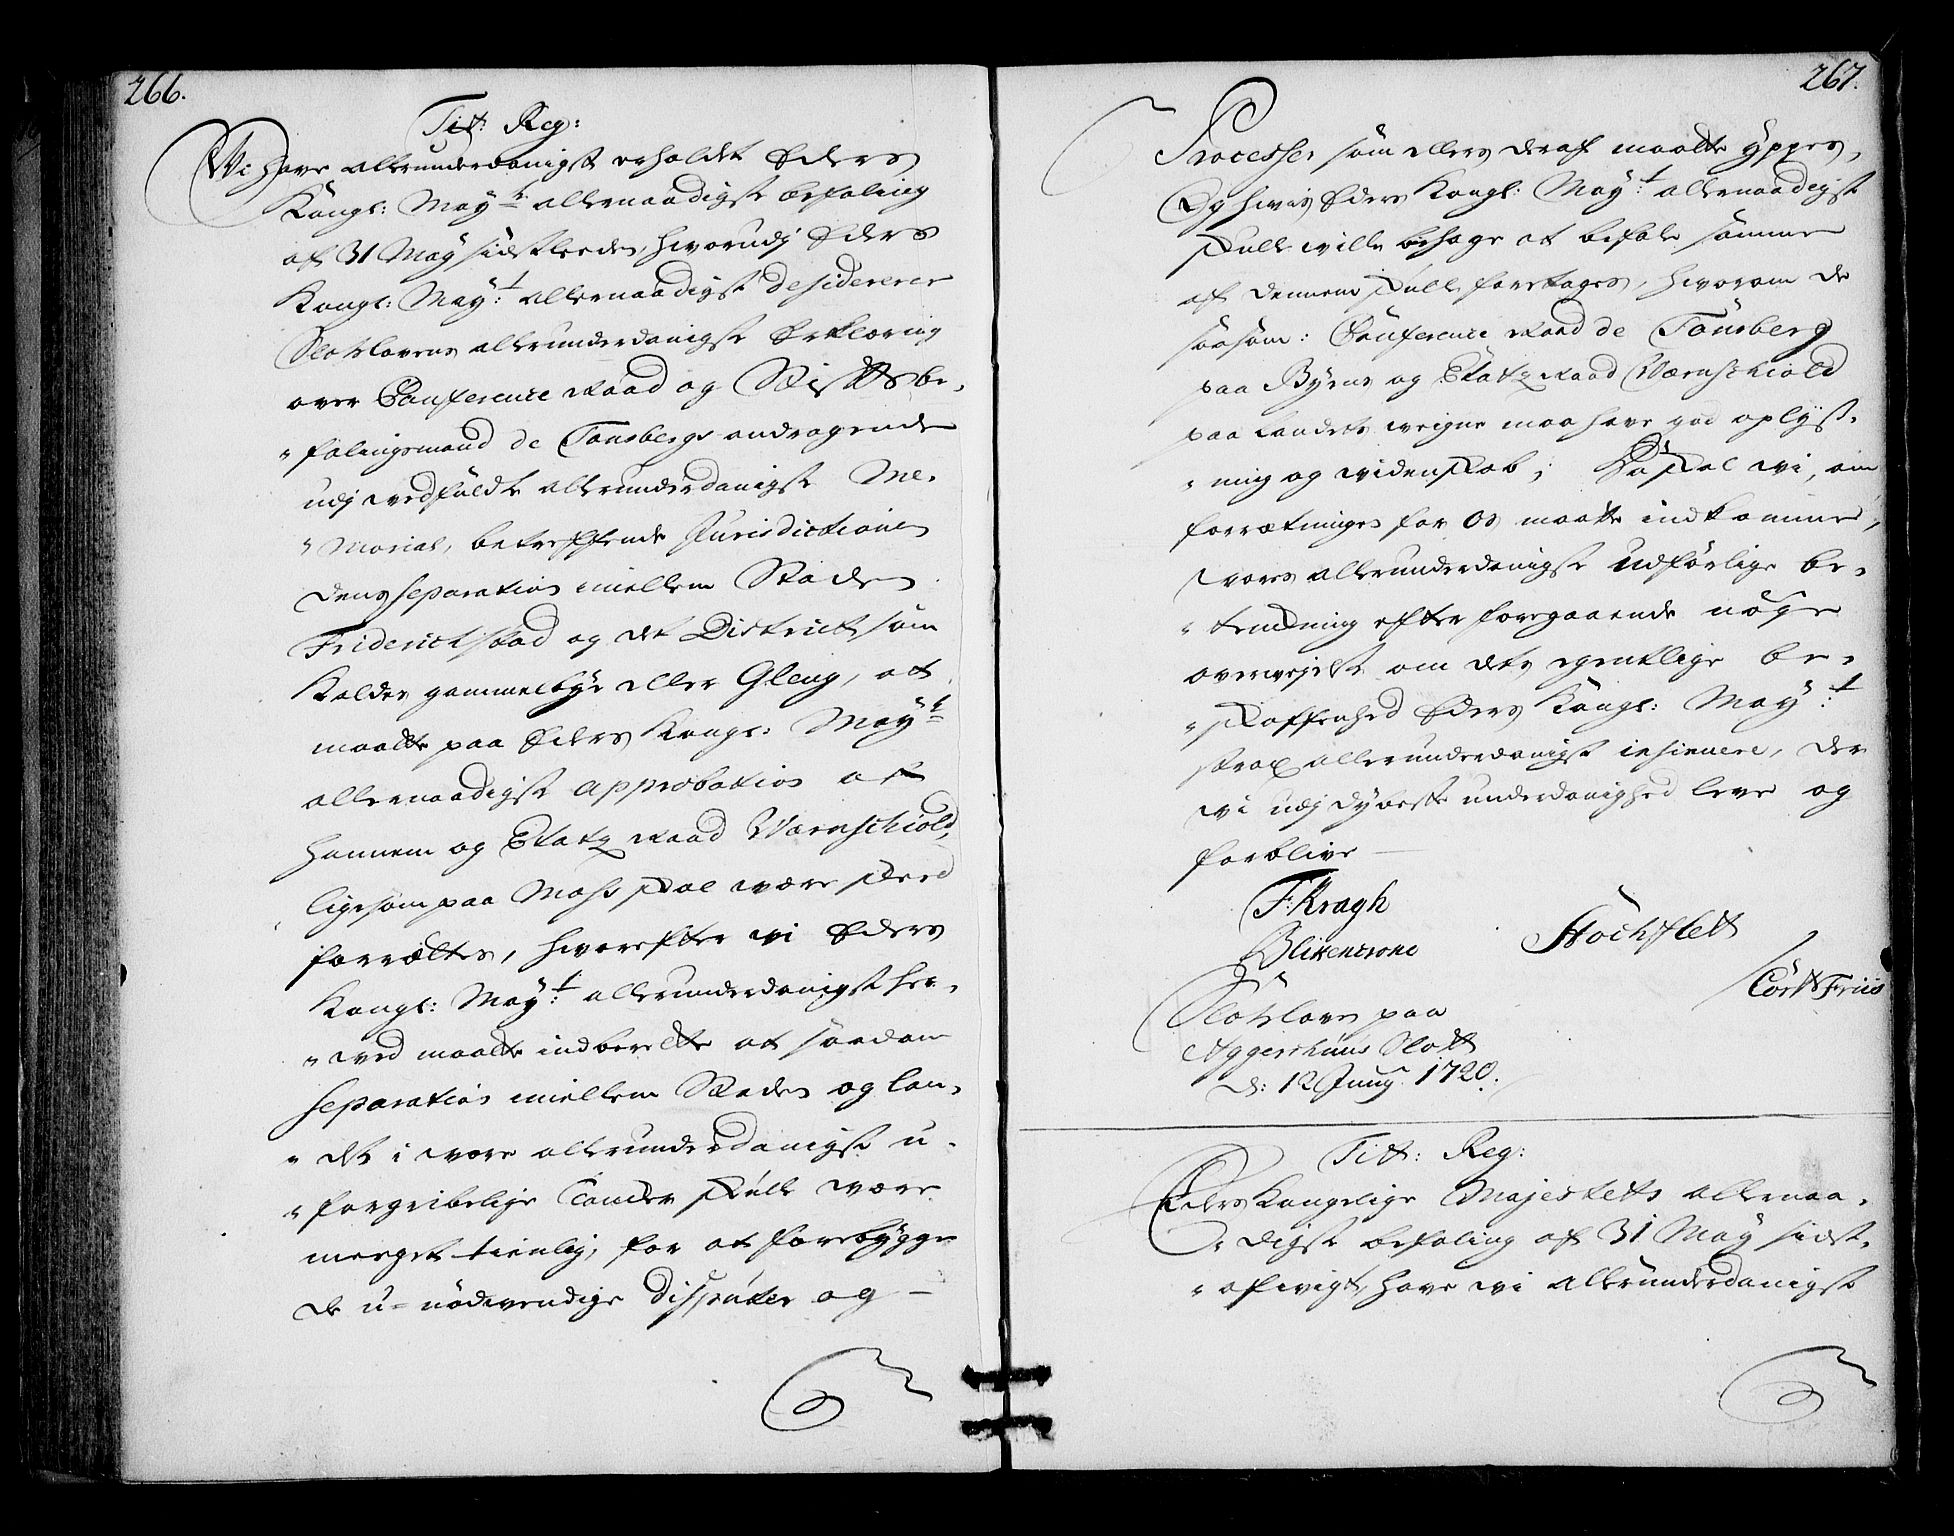 266.
Tit: Reg:
Wi Have allerunderdanigst erholdet Eders
Kongl: May.t allernaadigste befaling
af 31 May sidstleeden, hvorudj Eders
Kongl: May.t allernaadigst desiderer
Slotslovens allerunderdanigste Erklæring
over Conference Raad og Stiftsbe-
"falingsmand de Tonsbergs andragende
udj vedföldte allerunderdanigste Me-
"morial, betreffende Jurisdictione
dens separation imellem Staden
Friderichstad og det District som
Kaldes gammelbye eller Gleng, at
maatte paa Eders Kongl: May.t
allernaadigste approbation af
hannem og Etatz Raad Wærnschiold,
ligesom paa Moss skal være skeed
forrættes, hvorefter vi Eders
Kongl: May.t allerunderdanigst her-
"ved maatte indberette at saadan
separation imellem Staden og lan-
"det i vore allerunderdanigst u-
"forgribelige Tancker skulle være
meeget tienlig, for at forebygge
de u-nödvendige disputer og
267.
Processer som ellers deraf maatte yppes,
Og hvis Eders Kongl: May.t allernaadigst
skulle ville behage at befale samme
af dennem skulle foretages, hvorom de
saasom: Conference Raad de Tonsberg
paa Byens og Etatz Raad Wærnschiold
paa Landets veigne maa have god oplys-
"ning og videnskab; Da skal vi, om
forretninger for os maatte indkomme,
vores allerunderdanigste udförlige be-
"tenckning efter foregaaende nöye
overvejelse om dets egentlige be-
"skaffenhed Eders Kongl: May.t
strax allerunderdanigst insinuere, der
vi udj dybeste underdanighed leve og
forblive
F: Kragh
Blixencrone
Höchstett
Cort Friis
Slotsloven paa
Aggershuus Slott
d: 12 Juny 1720.
Titt: Reg:
Eders Kongelige Majestets allernaa-
"digste befaling af 31 May sidst-
"afvigt, have vi allerunderdanigst